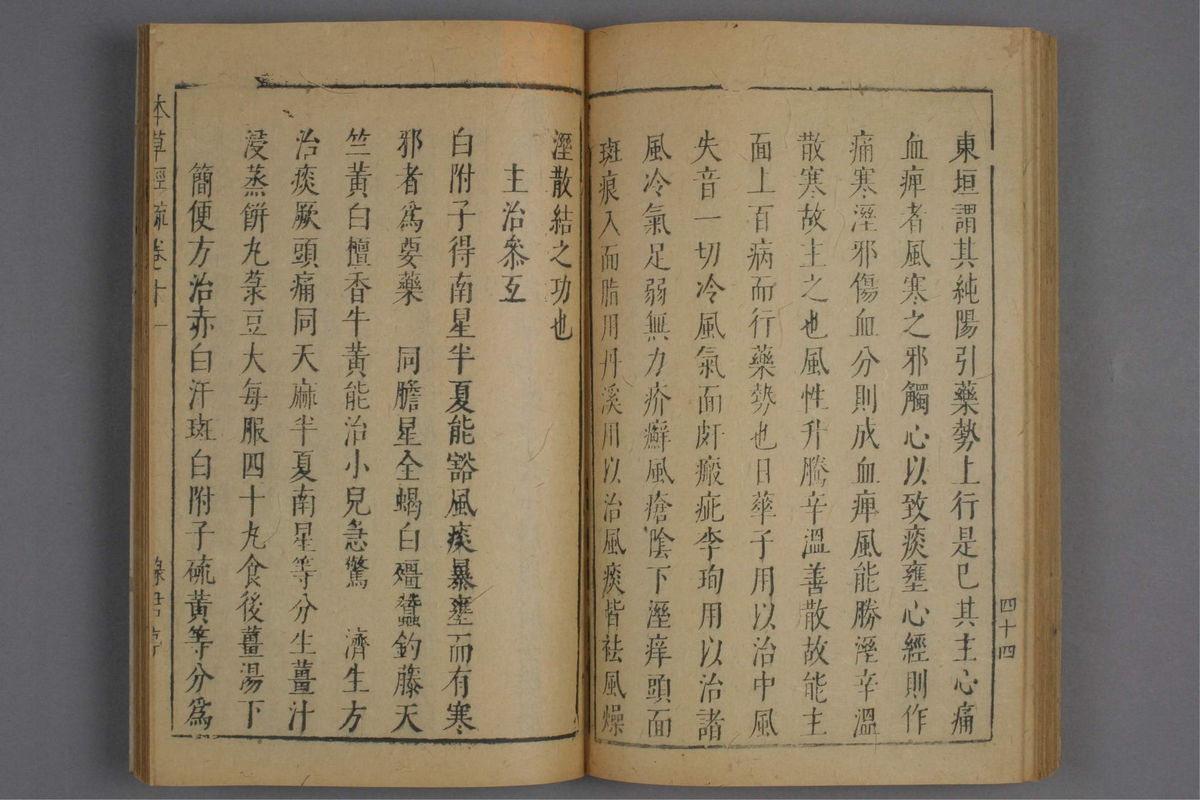 東垣謂其純陽引藥勢上行是已其主心痛
血痺者風寒之邪觸心以致痰壅心經則作
痛寒溼邪傷血分則成血痺風能勝溼辛溫
散寒故主之也風性升騰辛溫善散故能主
面上百病而行藥勢也日華子用以治中風
失音一切冷風氣面皯瘢疵李珣用以治諸
風冷氣足弱無力疥癬風瘡陰下溼痒頭面
斑痕入面脂用丹溪用以治風痰皆祛風燥
四十四
溼散結之功也
主治叅互
白附子得南星半夏能豁風痰暴壅而有寒
邪者爲要藥 同膽星全蝎白殭蠶釣藤天
竺黃白檀香牛黃能治小兒急驚 濟生方
治痰厥頭痛同天麻半夏南星等分生薑汁
浸蒸餅丸菉豆大每服四十丸食後薑湯下
簡便方治赤白汗斑白附子硫黃等分爲
本草經疏卷十一
綠君亭